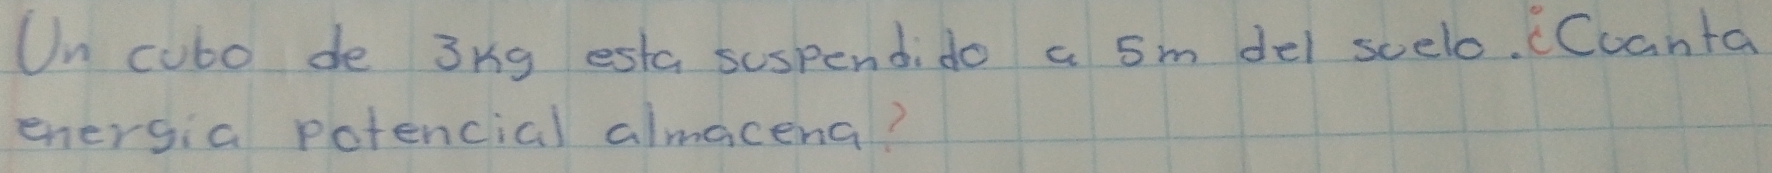 Un cubo de 3Kg esta suspendido a 5m del suelo. ¿Cuanta
energia potencial almacena?